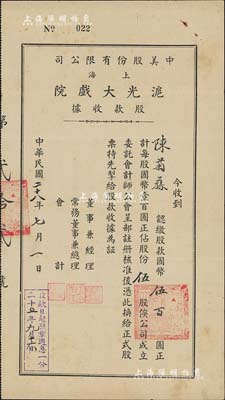 No 022
中美股份有限公司
上海
滬光大戲院
股款收據
今收到
陳菊蓀 認繳股款國幣伍百圓正
計每股國幣壹百圓正佔股份伍股俟公司成立
委託會計師公會呈部註册核准後憑此換給正式股
票特先掣給股款收據為証
董事兼經理
常務董事兼總理
會計
中華民國二十八年七月一日
第 號